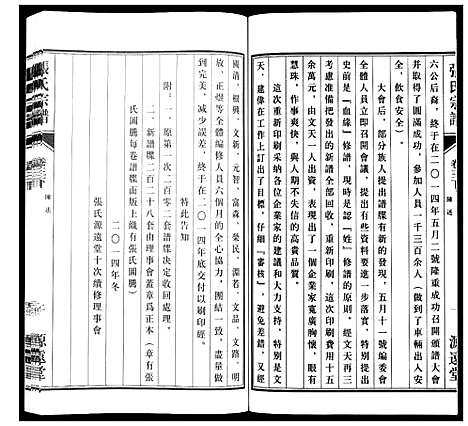 張氏宗譜
卷三下
陳述
源遠堂
六公后裔，終于在二〇一四年五月二號隆重成功召開頒譜大會
并取得了圓滿成功，參加人員一千三百余人（做到了車輛出入安
全，飲食安全）
大會后，部分族人提出譜牒有新的變動，五月十一號編委會
全體人員立即召開會議，提出有些資料要進一步落實，特別是歷
史前是「血緣」修譜，現時是認「姓」修譜的原則，經文天再三
考慮准備把發出的新譜全部回收，重新印刷，這次印刷費用十五
余萬元，由文天一人出資，表現出了一個企業家寬廣胸懷，眼有
慧珠，作事爽快，與人期不失信的高貴品質。
這次重新印刷采納各位企業家的建議和大力支持，特別是文
天，建偉在工作上訂出了目標，仔細「審核」，避免差錯，又經
國清，根興，文新，元智，富森，榮民，淵若，文品，文路，明
放，正煜等全體編修人員六個月的全心協力，團結一致，盡量做
到完美，減少誤差，終于在二〇一四年底交付以刷印經。
特此告知
附：一．原第一次二百零二套譜牒決定收回處理。
二．新譜牒二百二十八套由理事會蓋章爲正本（章有張
氏圖騰每卷譜牒面版上織有張氏圖騰）
二〇一四年冬
張氏源遠堂十次續修理事會
張氏宗譜
卷三下
陳述
源遠堂